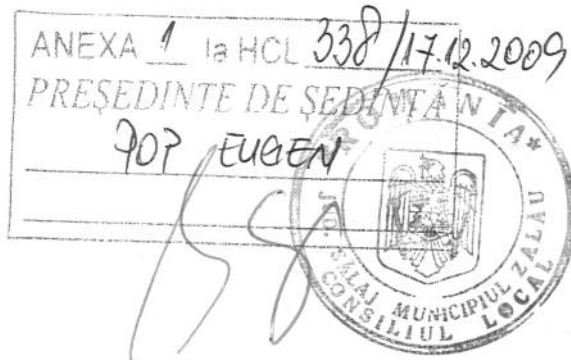 ANEXA 1 la HCL 338/17.12.2009
PREȘEDINTE DE ȘEDINȚĂ
POP EUGEN
ROMÂNIA*
JUD. SĂLAJ MUNICIPIUL ZALĂU
CONSILIUL LOCAL